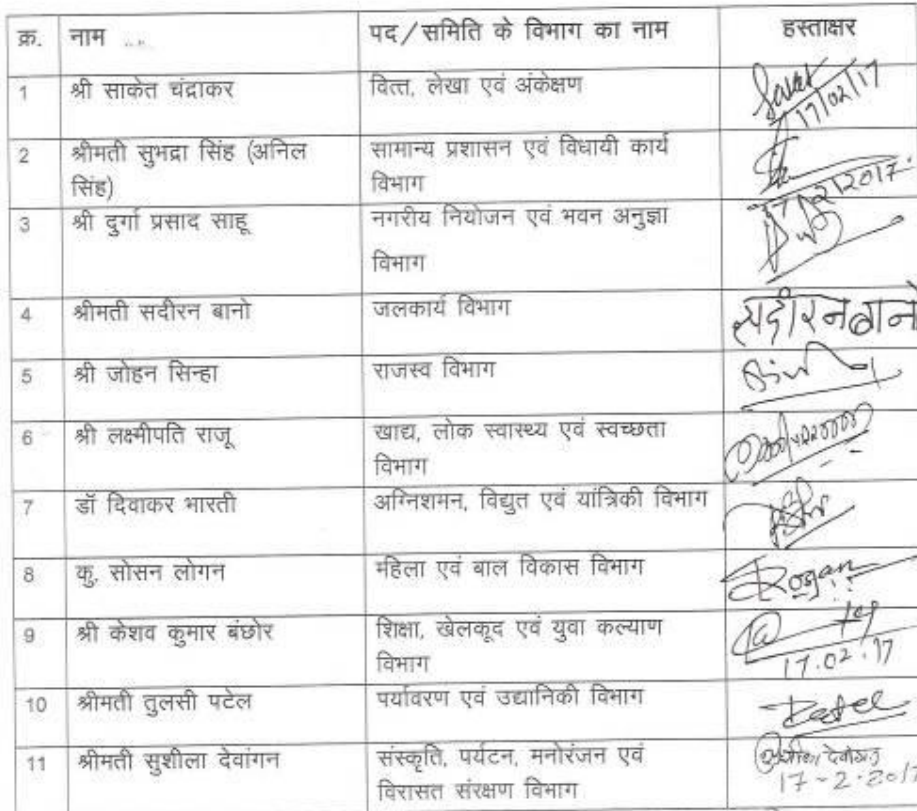 क्र. नाम पद/समिति के विभाग का नाम हस्ताक्षर
1 श्री साकेत चंद्राकर वित्त, लेखा एवं अंकेक्षण
17/02/17
2 श्रीमती सुभद्रा सिंह (अनिल सामान्य प्रशासन एवं विधायी कार्य
सिंह) विभाग
3 श्री दुर्गा प्रसाद साहू नगरीय नियोजन एवं भवन अनुज्ञा
विभाग
4 श्रीमती सदीरन बानो जलकार्य विभाग सदीरन बानो
5 श्री जोहन सिन्हा राजस्व विभाग
6 श्री लक्ष्मीपति राजू खाद्य, लोक स्वास्थ्य एवं स्वच्छता
विभाग
7 डॉ दिवाकर भारती अग्निशमन, विद्युत एवं यांत्रिकी विभाग
8 कु. सोसन लोगन महिला एवं बाल विकास विभाग
9 श्री केशव कुमार बंछोर शिक्षा, खेलकूद एवं युवा कल्याण
विभाग 17.02.17
10 श्रीमती तुलसी पटेल पर्यावरण एवं उद्यानिकी विभाग
11 श्रीमती सुशीला देवांगन संस्कृति, पर्यटन, मनोरंजन एवं
विरासत संरक्षण विभाग 17-2-2017